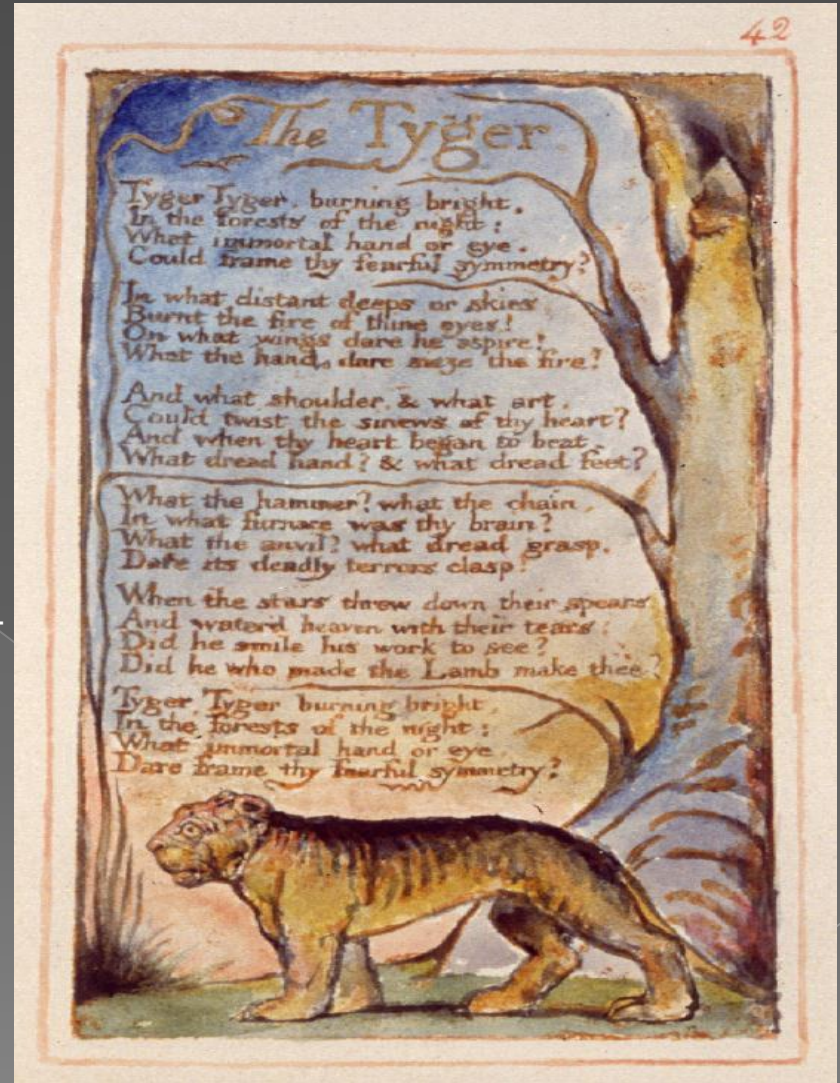 42
The Tyger
Tyger Tyger, burning bright,
In the forests of the night;
What immortal hand or eye,
Could frame thy fearful symmetry?
In what distant deeps or skies
Burnt the fire of thine eyes!
On what wings dare he aspire!
What the hand, dare sieze the fire?
And what shoulder, & what art,
Could twist the sinews of thy heart?
And when thy heart began to beat,
What dread hand? & what dread feet?
What the hammer? what the chain,
In what furnace was thy brain?
What the anvil? what dread grasp,
Dare its deadly terrors clasp!
When the stars threw down their spears
And waterd heaven with their tears:
Did he smile his work to see?
Did he who made the Lamb make thee?
Tyger, Tyger burning bright,
In the forests of the night:
What immortal hand or eye,
Dare frame thy fearful symmetry?